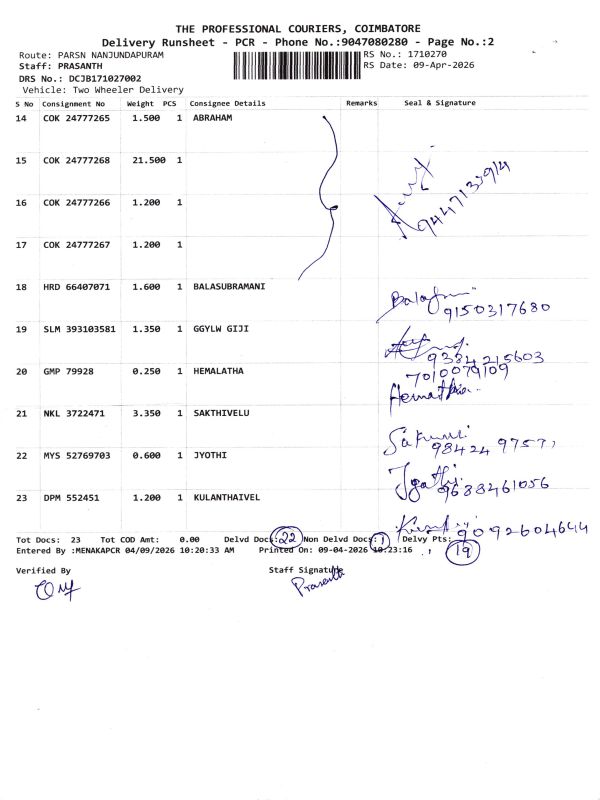 THE PROFESSIONAL COURIERS, COIMBATORE
Delivery Runsheet - PCR - Phone No.:9047080280 - Page No.:2
Route: PARSN NANJUNDAPURAM RS No.: 1710270
Staff: PRASANTH RS Date: 09-Apr-2026
DRS No.: DCJB171027002
Vehicle: Two Wheeler Delivery
S No Consignment No Weight PCS Consignee Details Remarks Seal & Signature
14 COK 24777265 1.500 1 ABRAHAM
15 COK 24777268 21.500 1
16 COK 24777266 1.200 1
17 COK 24777267 1.200 1
18 HRD 66407071 1.600 1 BALASUBRAMANI
9150317680
19 SLM 393103581 1.350 1 GGYLW GIJI
9384215603
20 GMP 79928 0.250 1 HEMALATHA 7010079109
21 NKL 3722471 3.350 1 SAKTHIVELU
22 MYS 52769703 0.600 1 JYOTHI
9688461056
23 DPM 552451 1.200 1 KULANTHAIVEL
9092604644
Tot Docs: 23 Tot COD Amt: 0.00 Delvd Docs: 22 Non Delvd Docs: 1 Delvy Pts: 19
Entered By :MENAKAPCR 04/09/2026 10:20:33 AM Printed On: 09-04-2026 10:23:16
Verified By Staff Signature
Prasanth